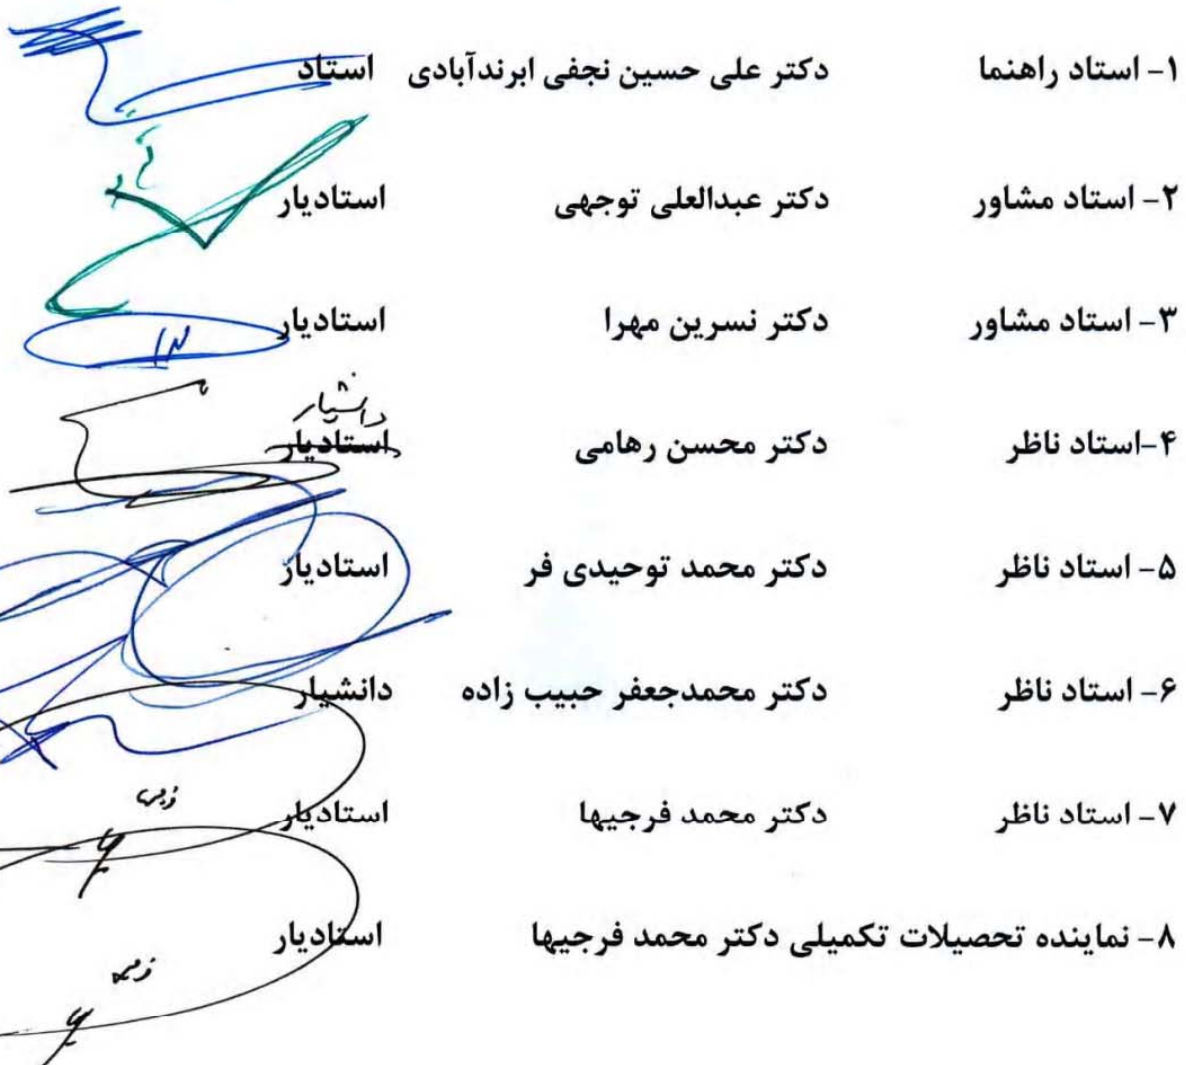 ۱- استاد راهنما دکتر علی حسین نجفی ابرندآبادی استاد
۲- استاد مشاور دکتر عبدالعلی توجهی استادیار
۳- استاد مشاور دکتر نسرین مهرا استادیار
دانشیار
۴-استاد ناظر دکتر محسن رهامی استادیار
۵- استاد ناظر دکتر محمد توحیدی فر استادیار
۶- استاد ناظر دکتر محمدجعفر حبیب زاده دانشیار
۷- استاد ناظر دکتر محمد فرجیها استادیار
۸- نماینده تحصیلات تکمیلی دکتر محمد فرجیها استادیار